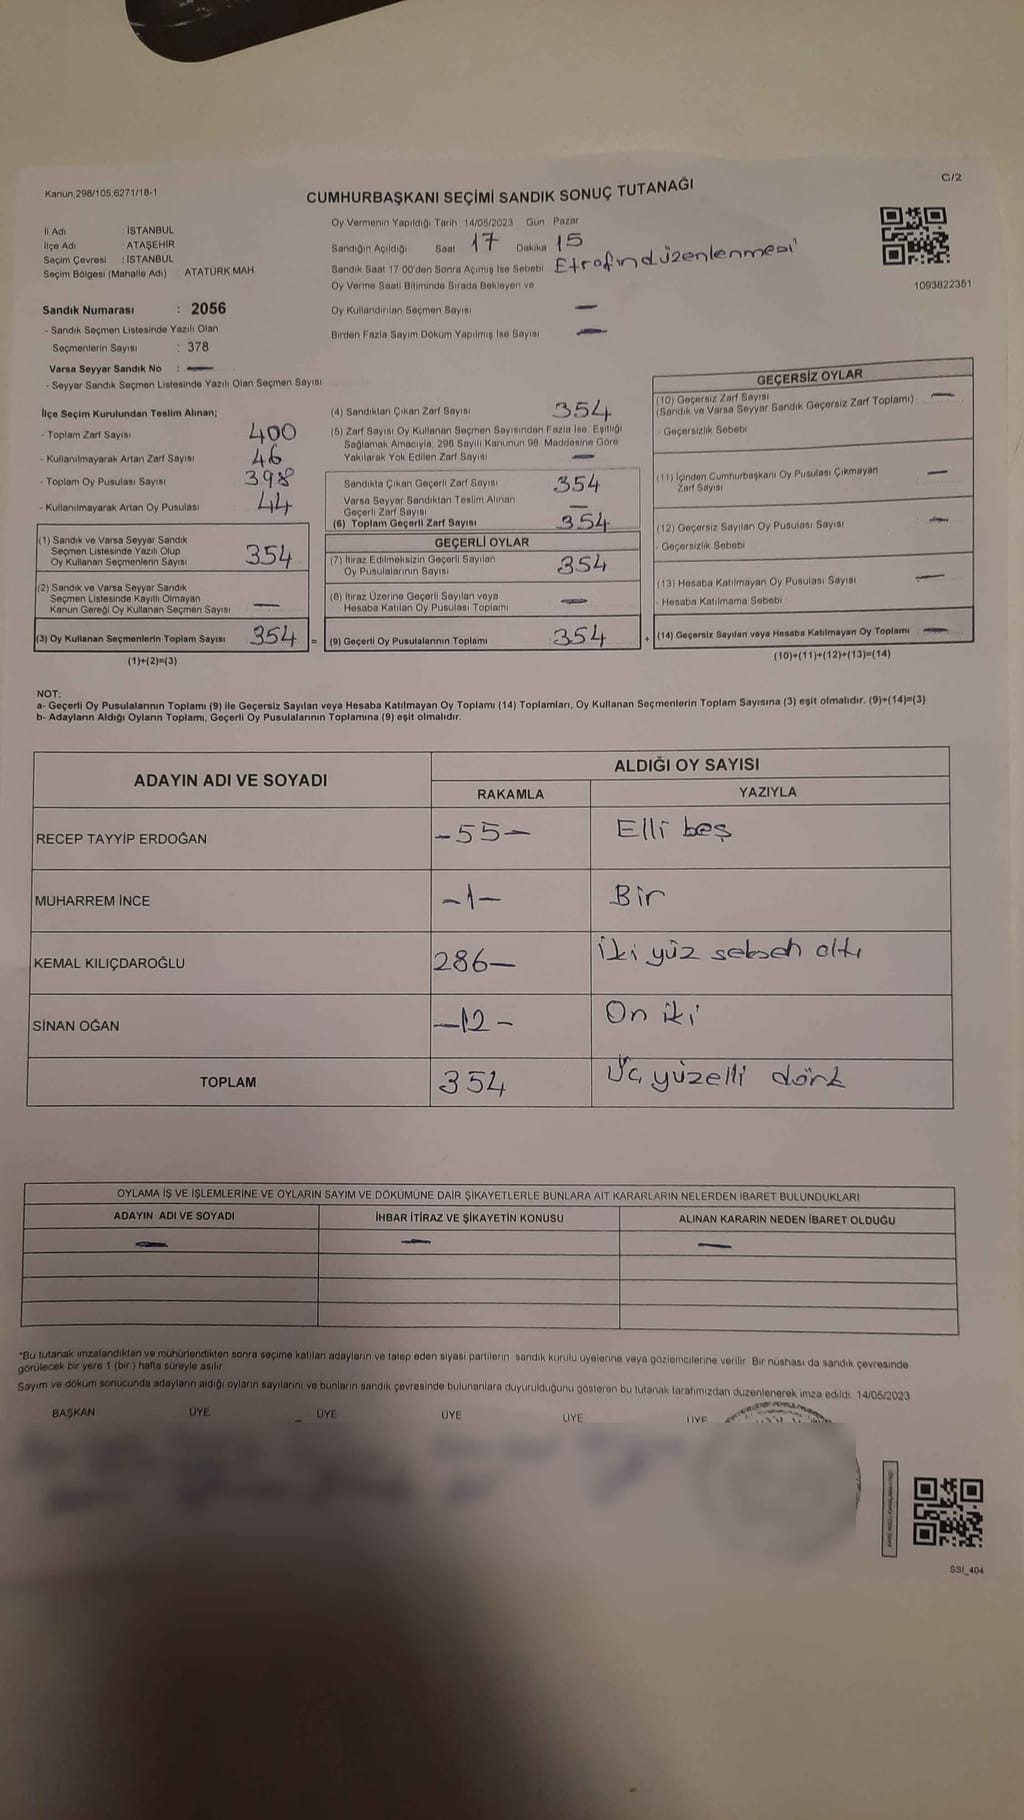 Kanun:298/105;6271/18-1
C/2
CUMHURBAŞKANI SEÇİMİ SANDIK SONUÇ TUTANAĞI
İl Adı : İSTANBUL
İlçe Adı : ATAŞEHİR
Seçim Çevresi : İSTANBUL
Seçim Bölgesi (Mahalle Adı) : ATATÜRK MAH.
Oy Vermenin Yapıldığı Tarih :14/05/2023 Gün : Pazar
Sandığın Açıldığı Saat 17 Dakika 15
Sandık Saat 17.00'den Sonra Açımış İse Sebebi Etrafın düzenlenmesi
Oy Verme Saati Bitiminde Sırada Bekleyen ve
Oy Kullandırılan Seçmen Sayısı —
Birden Fazla Sayım Döküm Yapılmış İse Sayısı —
1093822351
Sandık Numarası : 2056
- Sandık Seçmen Listesinde Yazılı Olan
Seçmenlerin Sayısı : 378
Varsa Seyyar Sandık No : —
- Seyyar Sandık Seçmen Listesinde Yazılı Olan Seçmen Sayısı
İlçe Seçim Kurulundan Teslim Alınan;
- Toplam Zarf Sayısı 400
- Kullanılmayarak Artan Zarf Sayısı 46
- Toplam Oy Pusulası Sayısı 398
- Kullanılmayarak Artan Oy Pusulası 44
(1) Sandık ve Varsa Seyyar Sandık
Seçmen Listesinde Yazılı Olup
Oy Kullanan Seçmenlerin Sayısı 354
(2) Sandık ve Varsa Seyyar Sandık
Seçmen Listesinde Kayıtlı Olmayan
Kanun Gereği Oy Kullanan Seçmen Sayısı —
(3) Oy Kullanan Seçmenlerin Toplam Sayısı 354 =
(1)+(2)=(3)
(4) Sandıktan Çıkan Zarf Sayısı 354
(5) Zarf Sayısı Oy Kullanan Seçmen Sayısından Fazla İse, Eşitliği
Sağlamak Amacıyla; 298 Sayılı Kanunun 98. Maddesine Göre
Yakılarak Yok Edilen Zarf Sayısı —
Sandıkta Çıkan Geçerli Zarf Sayısı 354
Varsa Seyyar Sandıktan Teslim Alınan
Geçerli Zarf Sayısı —
(6) Toplam Geçerli Zarf Sayısı 354
GEÇERLİ OYLAR
(7) İtiraz Edilmeksizin Geçerli Sayılan
Oy Pusulalarının Sayısı 354
(8) İtiraz Üzerine Geçerli Sayılan veya
Hesaba Katılan Oy Pusulası Toplamı —
(9) Geçerli Oy Pusulalarının Toplamı 354 +
GEÇERSİZ OYLAR
(10) Geçersiz Zarf Sayısı —
(Sandık ve Varsa Seyyar Sandık Geçersiz Zarf Toplamı)
- Geçersizlik Sebebi
(11) İçinden Cumhurbaşkanı Oy Pusulası Çıkmayan
Zarf Sayısı —
(12) Geçersiz Sayılan Oy Pusulası Sayısı —
- Geçersizlik Sebebi
(13) Hesaba Katılmayan Oy Pusulası Sayısı —
- Hesaba Katılmama Sebebi
(14) Geçersiz Sayılan veya Hesaba Katılmayan Oy Toplamı —
(10)+(11)+(12)+(13)=(14)
NOT:
a- Geçerli Oy Pusulalarının Toplamı (9) ile Geçersiz Sayılan veya Hesaba Katılmayan Oy Toplamı (14) Toplamları, Oy Kullanan Seçmenlerin Toplam Sayısına (3) eşit olmalıdır. (9)+(14)=(3)
b- Adayların Aldığı Oyların Toplamı, Geçerli Oy Pusulalarının Toplamına (9) eşit olmalıdır.
ADAYIN ADI VE SOYADI
ALDIĞI OY SAYISI
RAKAMLA YAZIYLA
RECEP TAYYİP ERDOĞAN -55- Elli beş
MUHARREM İNCE -1- Bir
KEMAL KILIÇDAROĞLU 286- İki yüz seksen altı
SİNAN OĞAN -12- On iki
TOPLAM 354 Üç yüzelli dört
OYLAMA İŞ VE İŞLEMLERİNE VE OYLARIN SAYIM VE DÖKÜMÜNE DAİR ŞİKAYETLERLE BUNLARA AİT KARARLARIN NELERDEN İBARET BULUNDUKLARI
ADAYIN ADI VE SOYADI İHBAR İTİRAZ VE ŞİKAYETİN KONUSU ALINAN KARARIN NEDEN İBARET OLDUĞU
— — —
*Bu tutanak imzalandıktan ve mühürlendikten sonra seçime katılan adayların ve talep eden siyasi partilerin sandık kurulu üyelerine veya gözlemcilerine verilir. Bir nüshası da sandık çevresinde
görülecek bir yere 1 (bir ) hafta süreyle asılır.
Sayım ve döküm sonucunda adayların aldığı oyların sayılarını ve bunların sandık çevresinde bulunanlara duyurulduğunu gösteren bu tutanak tarafımızdan düzenlenerek imza edildi. 14/05/2023
BAŞKAN ÜYE ÜYE ÜYE ÜYE ÜYE
SSI_404